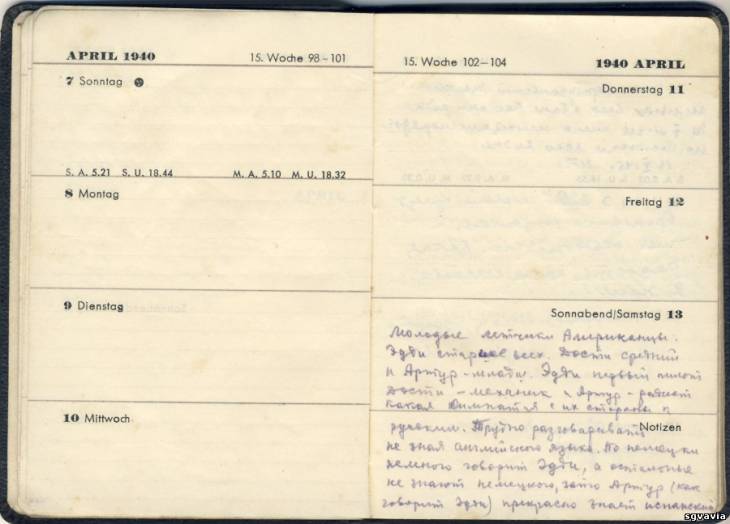 APRIL 1940
15. Woche 98–101
7 Sonntag
S. A. 5.21 S. U. 18.44 M. A. 5.10 M. U. 18.32
8 Montag
9 Dienstag
10 Mittwoch
15. Woche 102–104
1940 APRIL
Donnerstag 11
Freitag 12
Sonnabend/Samstag 13
Молодые летчики Американцы.
Эдди старше всех. Дости средний
и Артур - младш. Эдди первый пилот
Дости - механик и Артур - радист
Какая симпатия с их стороны к
Notizen
русским. Трудно разговаривать
не зная английского языка. По немецки
немного говорит Эдди, а остальные
не знают немецкого, зато Артур (как
говорит Эдди) прекрасно знает испанский
sgvavia